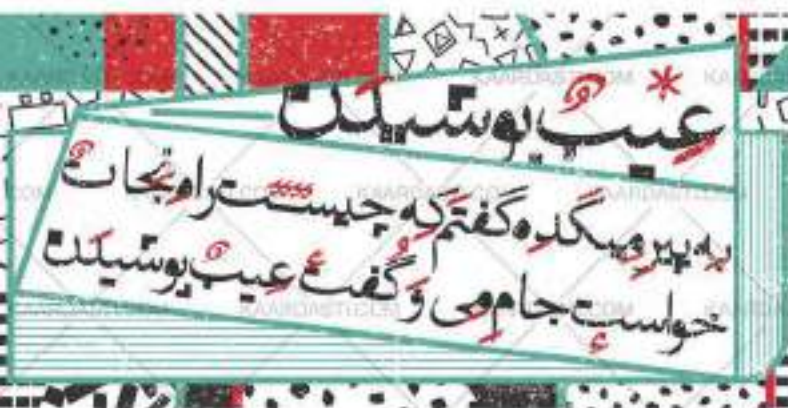 عیب پوشیدن
به پیر میکده گفتم که چیست راه نجات
بخواست جام می و گفت عیب پوشیدن
KAARDASTI.COM